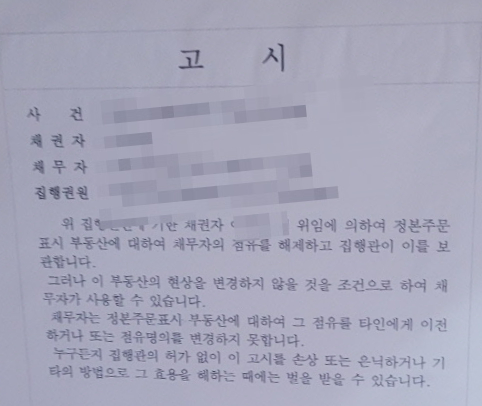 고 시
사 건
채 권 자
채 무 자
집행권원
위 집행 기한 채권자 위임에 의하여 정본주문
표시 부동산에 대하여 채무자의 점유를 해제하고 집행관이 이를 보
관합니다.
그러나 이 부동산의 현상을 변경하지 않을 것을 조건으로 하여 채
무자가 사용할 수 있습니다.
채무자는 정본주문표시 부동산에 대하여 그 점유를 타인에게 이전
하거나 또는 점유명의를 변경하지 못합니다.
누구든지 집행관의 허가 없이 이 고시를 손상 또는 은닉하거나 기
타의 방법으로 그 효용을 해하는 때에는 벌을 받을 수 있습니다.